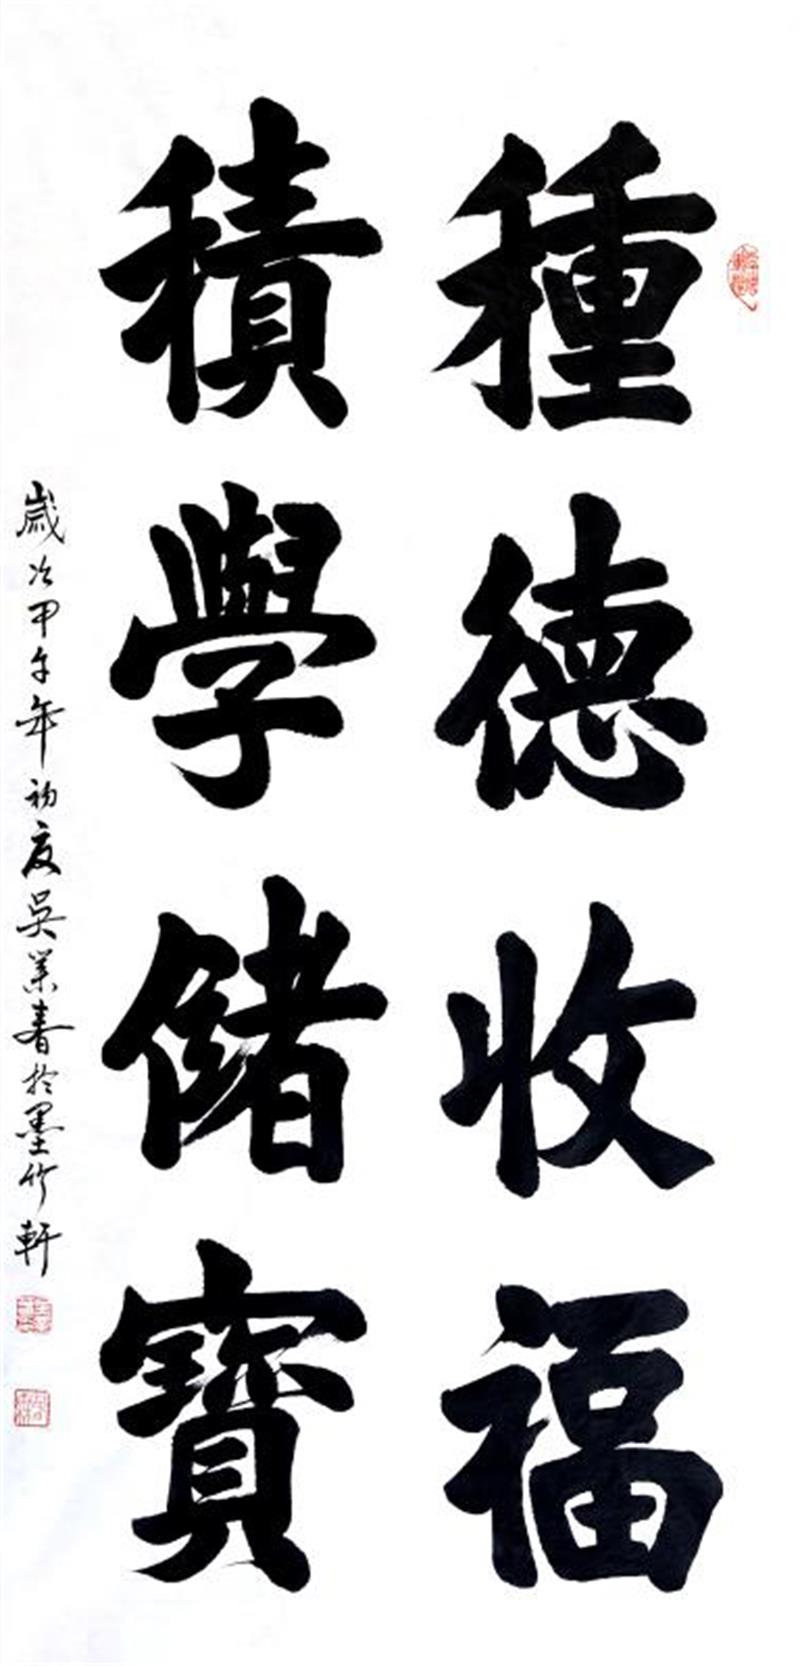 種德收福
積學儲寶
歲次甲午年初夏吳業春於墨竹軒